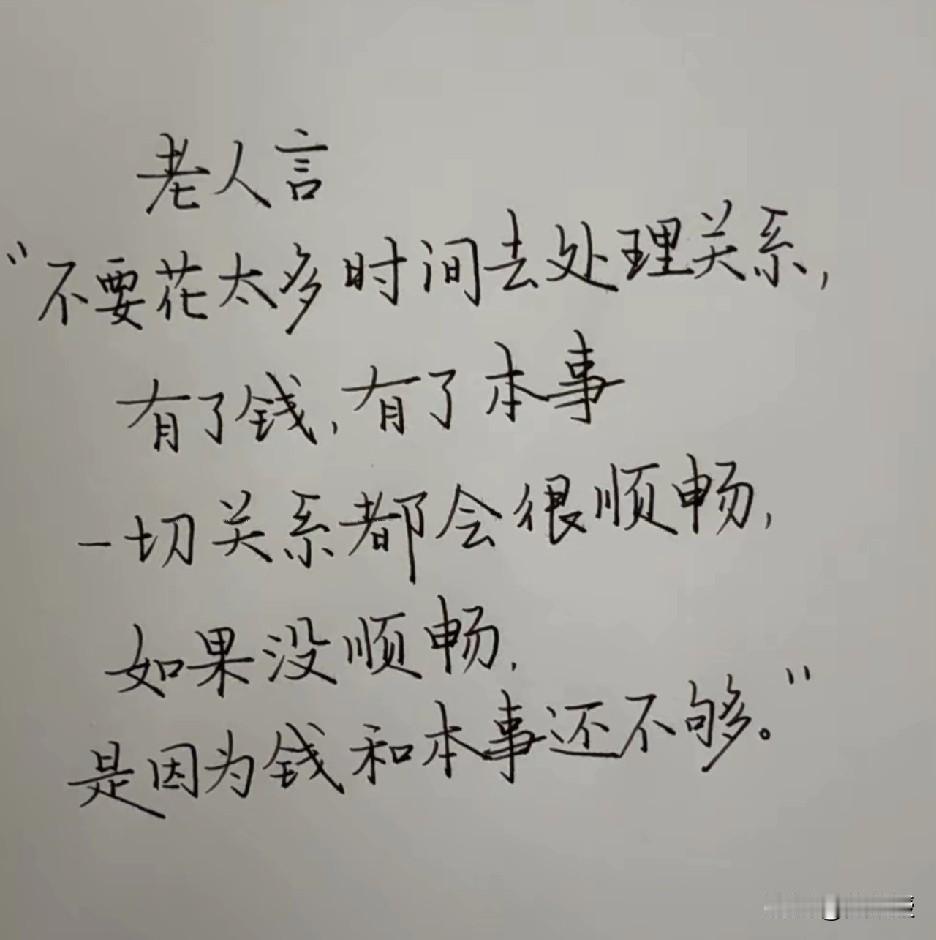 老人言
“不要花太多时间去处理关系,
有了钱,有了本事
一切关系都会很顺畅,
如果没顺畅,
是因为钱和本事还不够。”